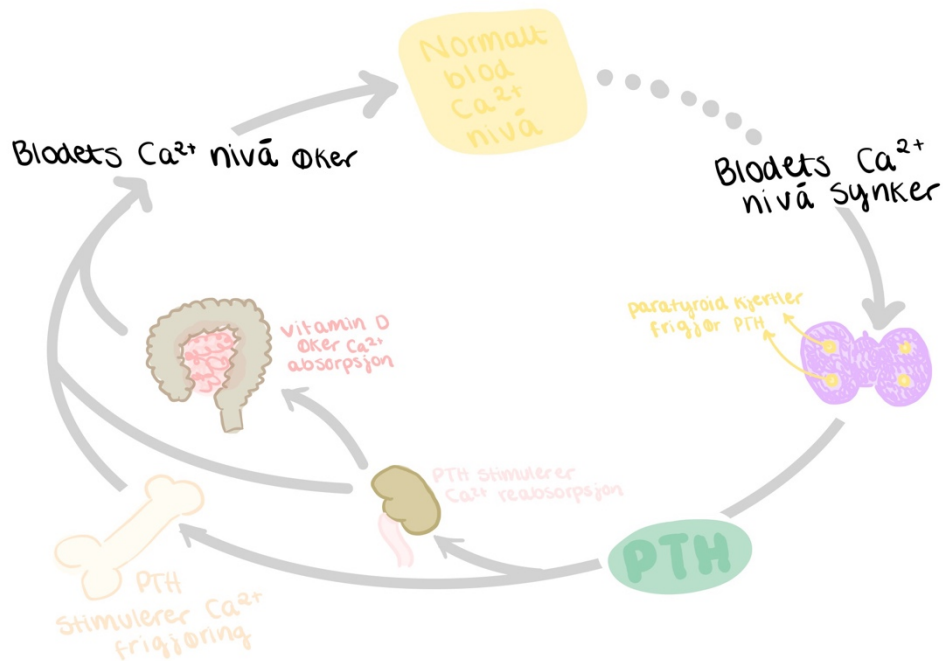 Normalt
blod
Ca²⁺
nivå
Blodets Ca²⁺ nivå øker
Blodets Ca²⁺
nivå synker
paratyroid kjertler
frigjør PTH
vitamin D
øker Ca²⁺
absorpsjon
PTH stimulerer
Ca²⁺ reabsorpsjon
PTH
PTH
stimulerer Ca²⁺
frigjøring